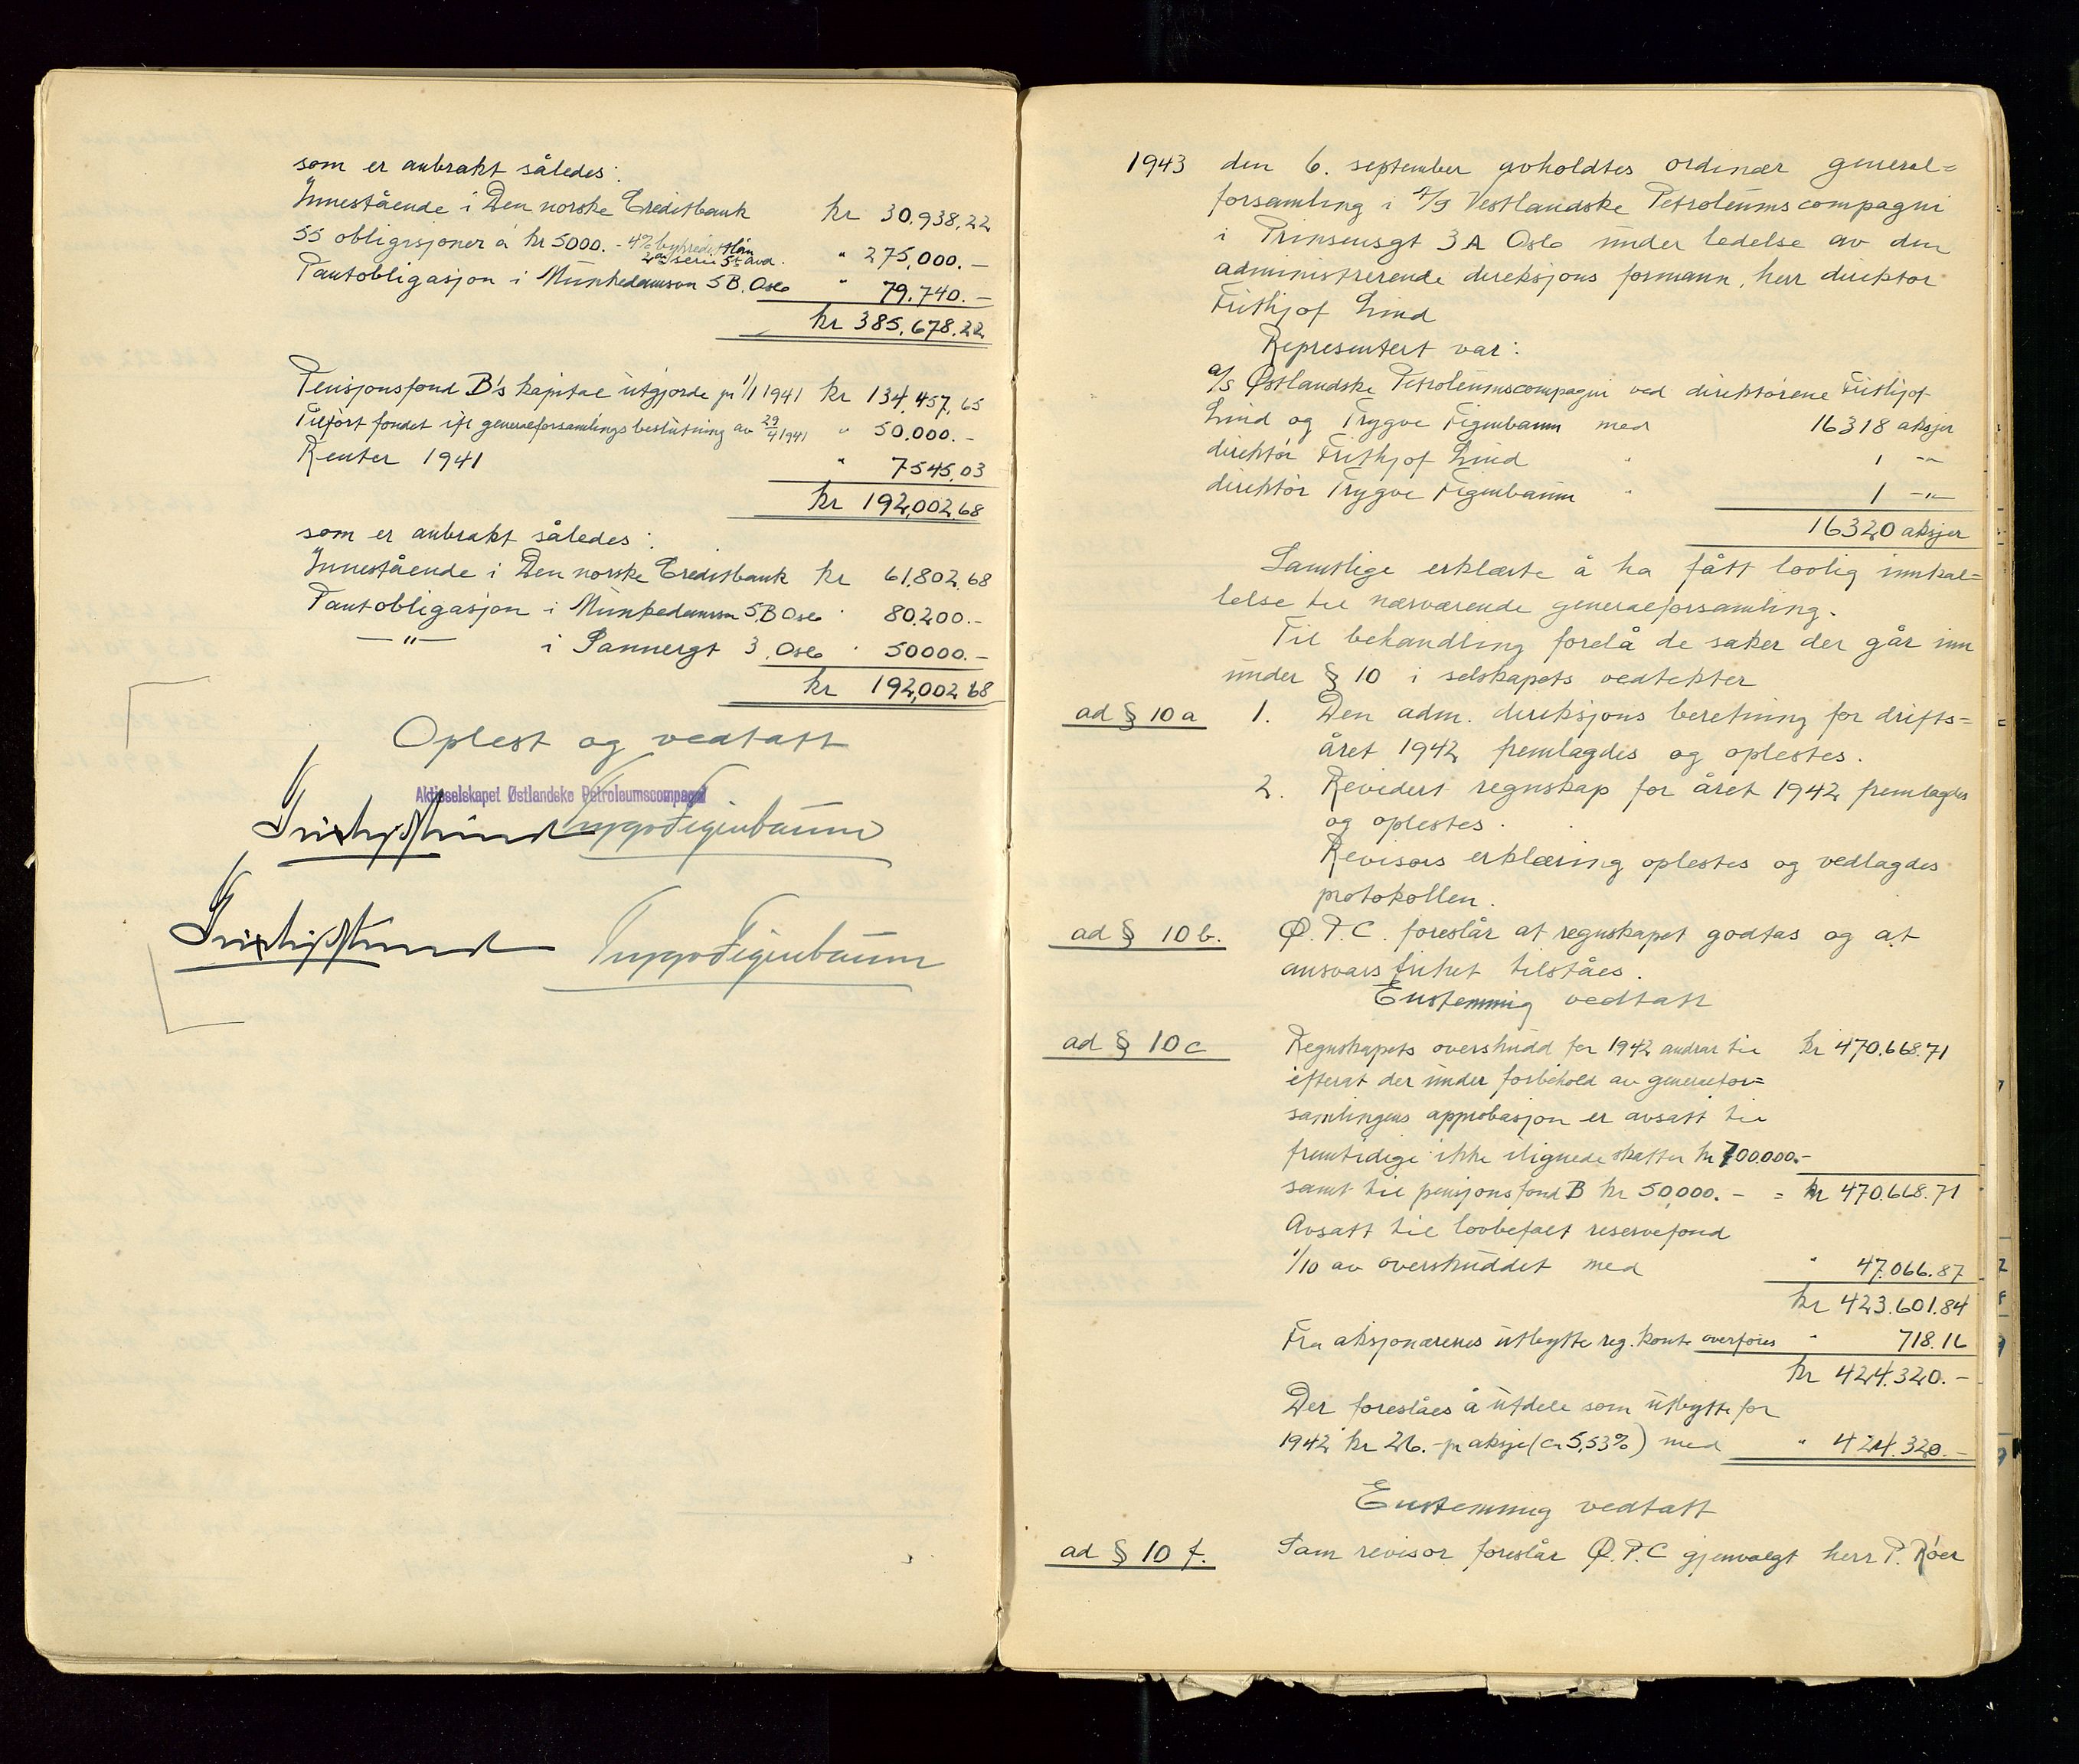 som er anbrakt således:
Innestående i Den norske Creditbank kr 30.938,22
55 obligasjoner á kr 5000.- 4% bykredittlån
2en serie 5te avd. " 275,000.-
Pantobligasjon i Munkedamsvn 5B, Oslo " 79.740.-
kr 385.678.22
Pensjonsfond B's kapital utgjorde pr 1/1 1941 kr 134,457,65
Tilført fondet ifl generalforsamlings beslutning av 29/4 1941 " 50.000.-
Renter 1941 " 7545,03
kr 192,002,68
som er anbrakt således:
Innestående i Den norske Creditbank kr 61.802,68
Pantobligasjon i Munkedamsvn 5,B Oslo " 80.200.-
—"— i Sannergt 3, Oslo " 50000.-
kr 192,002,68
Oplest og vedtatt
Aktieselskapet Østlandske Petroleumscompagni
Frithjof Lind Trygve Figenbaum
Frithjof Lind Trygve Figenbaum
1943 den 6. september avholdtes ordinær general=
forsamling i A/S Vestlandske Petroleumscompagni
i Prinsensgt 3A Oslo under ledelse av den
administrerende direksjons formann, herr direktør
Frithjof Lind
Representert var:
a/s Østlandske Petroleumscompagni ved direktørene Frithjof
Lind og Trygve Figenbaum med 16318 aksjer
direktør Frithjof Lind " 1 -"-
direktør Trygve Figenbaum " 1 -"-
16320 aksjer
Samtlige erklærte å ha fått lovlig innkal=
lelse til nærværende generalforsamling.
Til behandling forelå de saker der går inn
under § 10 i selskapets vedtekter
ad § 10 a 1. Den adm. direksjons beretning for drifts=
året 1942 fremlagdes og oplestes.
2. Revidert regnskap for året 1942 fremlagdes
og oplestes.
Revisors erklæring oplestes og vedlagdes
protokollen.
ad § 10 b. Ø.P.C. foreslår at regnskapet godtas og at
ansvarsfrihet tilståes.
Enstemmig vedtatt
ad § 10 c Regnskapets overskudd for 1942 andrar til kr 470.668.71
efterat der under forbehold av generalfor=
samlingens approbasjon er avsatt til
fremtidige ikke ilignede skatter kr 700.000.-
samt til pensjonsfond B kr 50,000.- = kr 470.668.71
Avsatt til lovbefalt reservefond
1/10 av overskuddet med " 47.066.87
kr 423.601.84
Fra aksjonærenes utbytte reg. konto overføres " 718.16
kr 424.320.-
Der foreslåes å utdele som utbytte for
1942 kr 26.- pr aksje (ca 5,53%) med " 424.320.-
Enstemmig vedtatt
ad § 10 f. Som revisor foreslår Ø.P.C gjenvalgt herr P. Røer